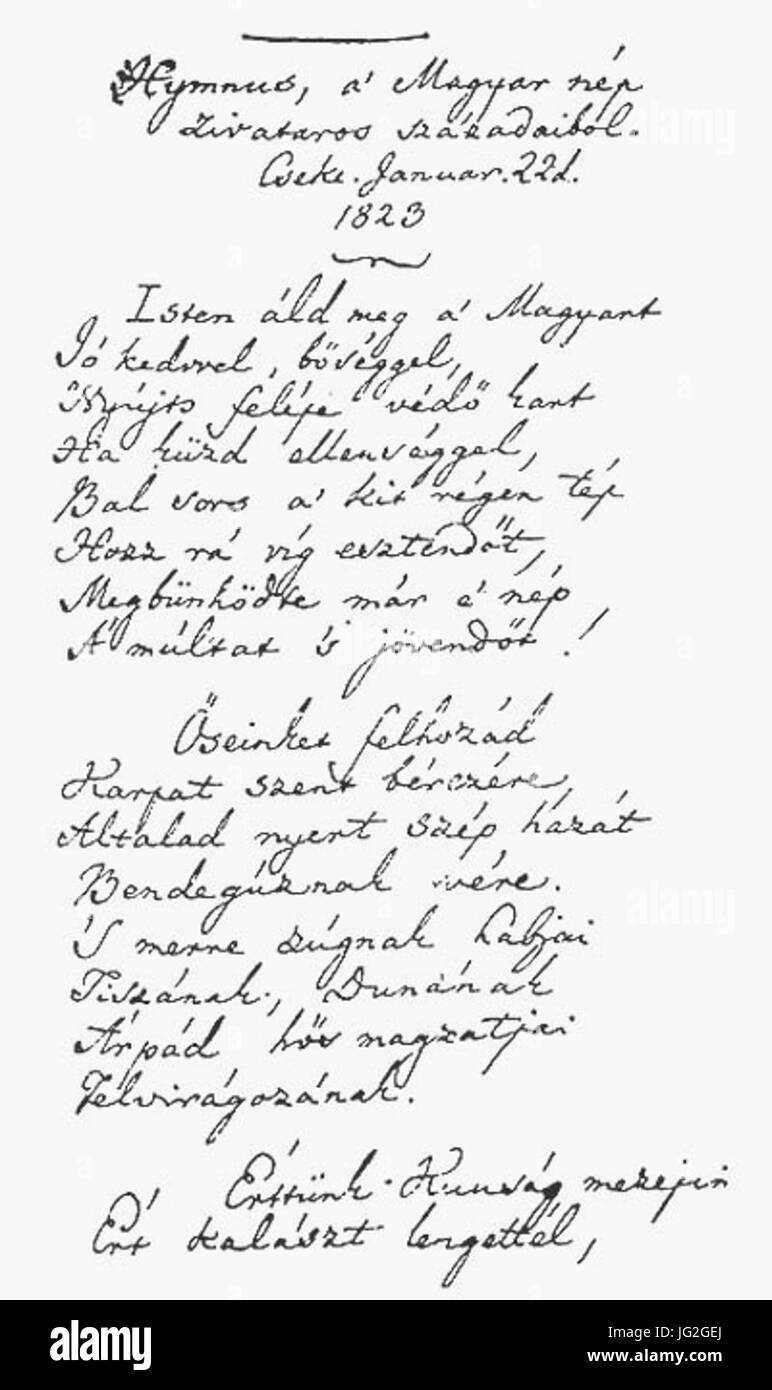 Hymnus, a' Magyar nép
zivataros századaiból.
Cseke. Januar. 22d.
1823
Isten áld meg a' Magyart
Jó kedvvel, bőséggel,
Nyújts feléje védő kart
Ha küzd ellenséggel,
Bal sors a' kit régen tép
Hozz rá víg esztendőt,
Megbünhödte már e' nép
A' múltat 's jövendőt!
Őseinket felhozád
Karpat szent bérczére,
Altalad nyert szép hazát
Bendegúznak vére.
'S merre zúgnak habjai
Tiszának, Dunának
Árpád hős magzatjai
Felvirágozának.
Érttünk Kunság mezején
Ért kalászt lengettél,
alamy
Image ID: JG2GEJ
www.alamy.com